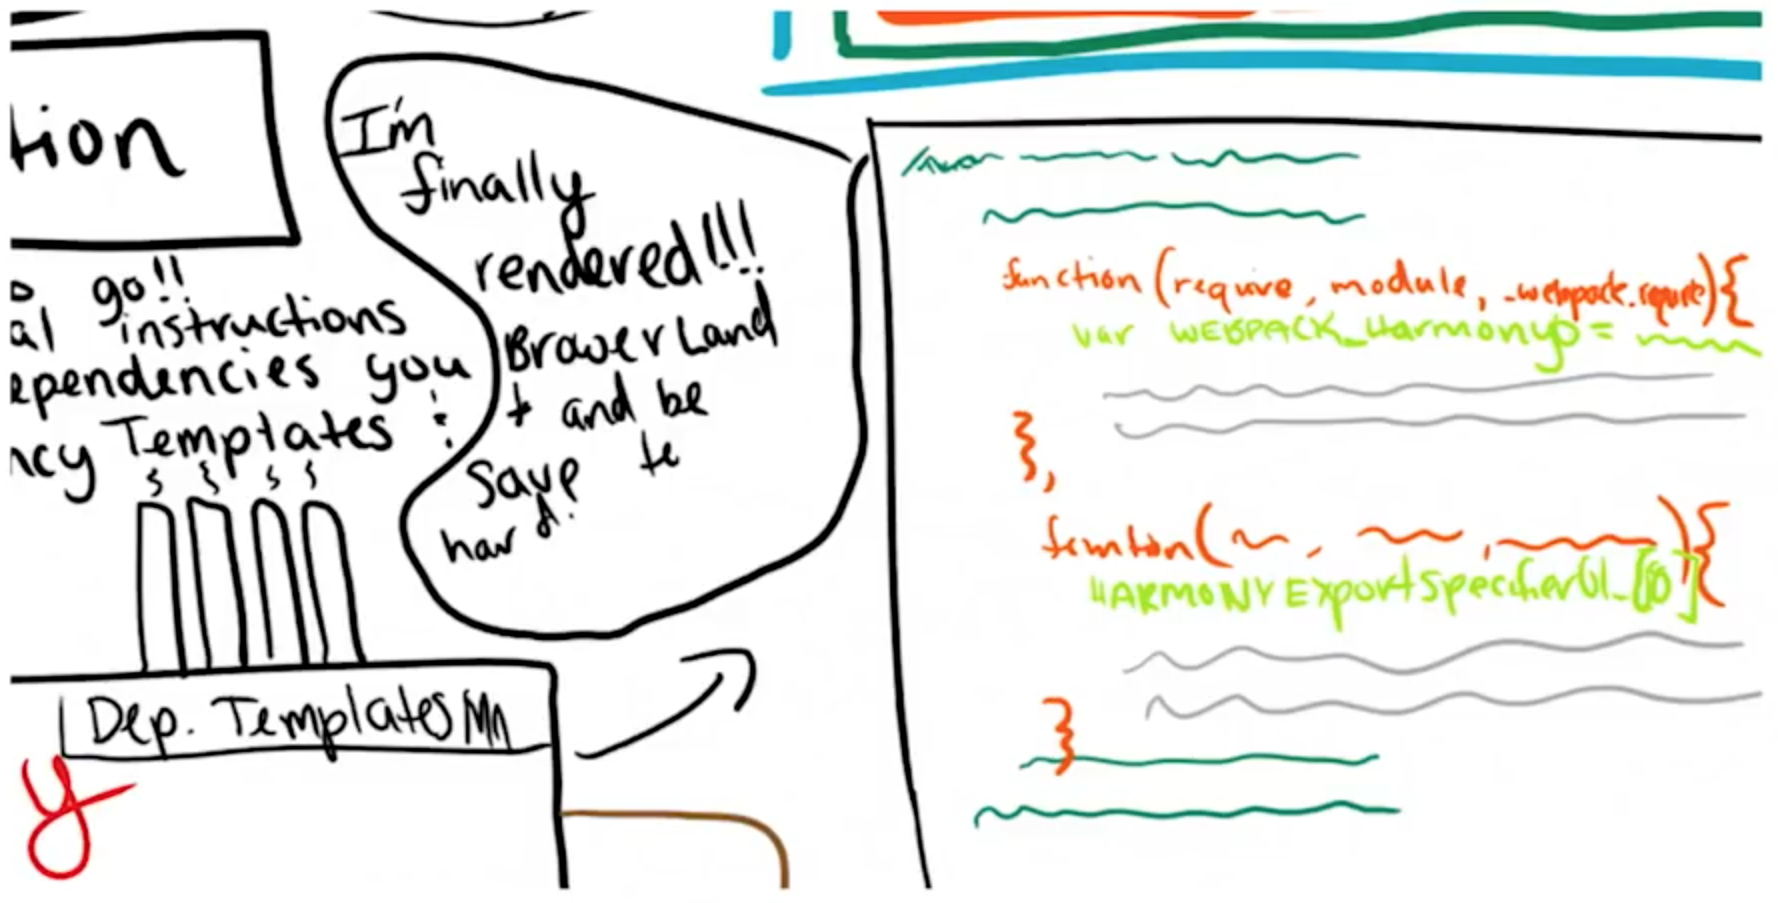 tion
go!!
al instructions
ependencies you
ncy Templates !
Dep. Templates
y
I'm
finally
rendered!!!
Brower Land
t and be
Save te
hard.
function (require, module, _webpack.require){
var WEBPACK_Harmony =
},
function( , , ){
HARMONY Export Specifier
}